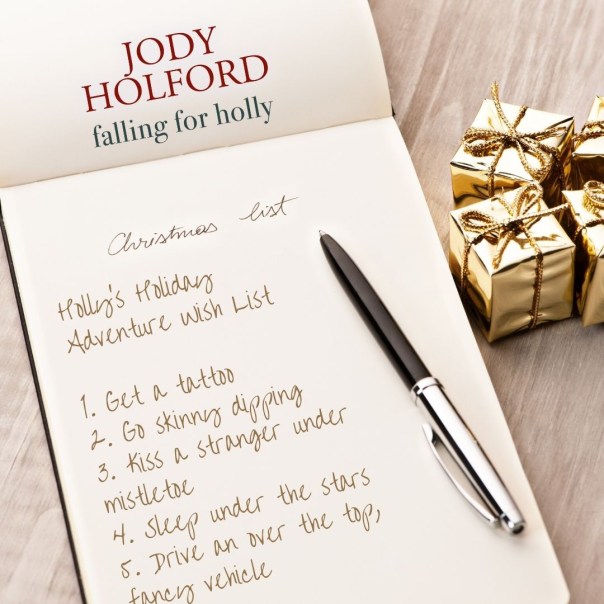 JODY
HOLFORD
falling for holly
Christmas list
Holly's Holiday
Adventure Wish List
1. Get a tattoo
2. Go skinny dipping
3. Kiss a stranger under
mistletoe
4. Sleep under the stars
5. Drive an over the top,
fancy vehicle